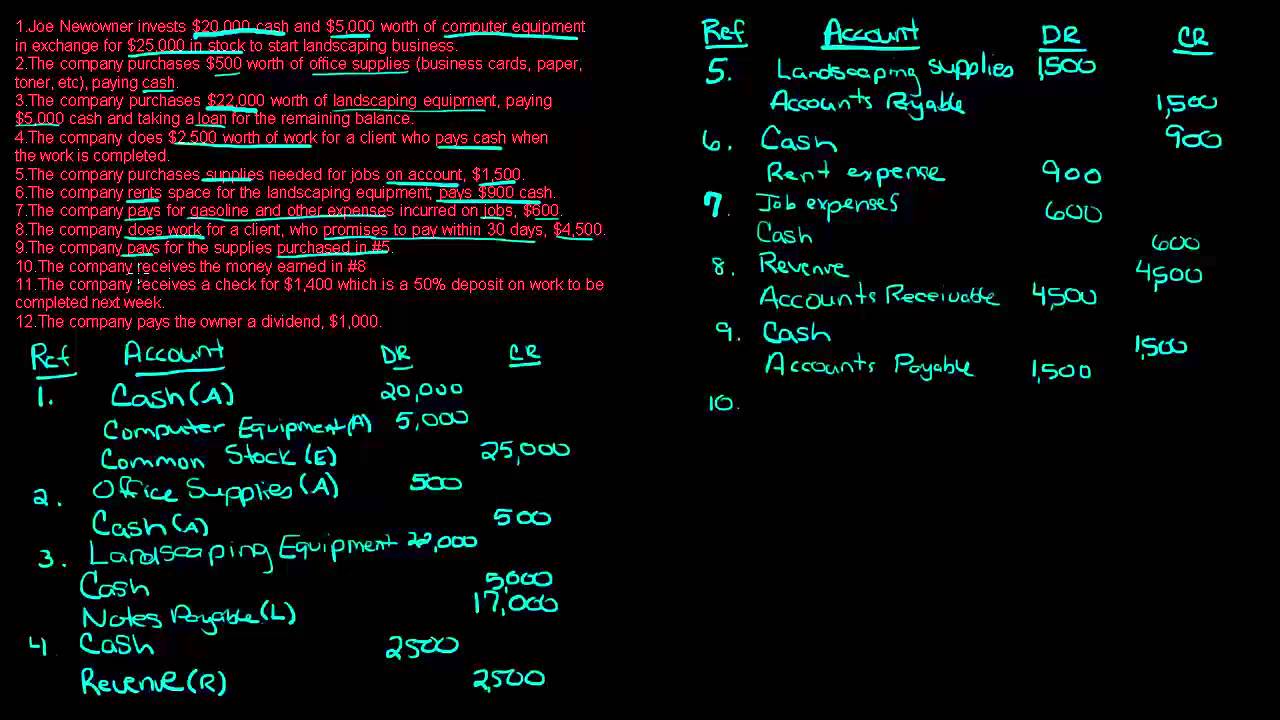 1.Joe Newowner invests $20,000 cash and $5,000 worth of computer equipment
in exchange for $25,000 in stock to start landscaping business.
2.The company purchases $500 worth of office supplies (business cards, paper,
toner, etc), paying cash.
3.The company purchases $22,000 worth of landscaping equipment, paying
$5,000 cash and taking a loan for the remaining balance.
4.The company does $2,500 worth of work for a client who pays cash when
the work is completed.
5.The company purchases supplies needed for jobs on account, $1,500.
6.The company rents space for the landscaping equipment; pays $900 cash.
7.The company pays for gasoline and other expenses incurred on jobs, $600.
8.The company does work for a client, who promises to pay within 30 days, $4,500.
9.The company pays for the supplies purchased in #5.
10.The company receives the money earned in #8
11.The company receives a check for $1,400 which is a 50% deposit on work to be
completed next week.
12.The company pays the owner a dividend, $1,000.
Ref Account DR CR
1. Cash (A) 20,000
Computer Equipment (A) 5,000
Common Stock (E) 25,000
2. Office Supplies (A) 500
Cash (A) 500
3. Landscaping Equipment 22,000
Cash 5,000
Notes Payable (L) 17,000
4 Cash 2500
Revenue (R) 2,500
Ref Account DR CR
5. Landscaping supplies 1,500
Accounts Payable 1,500
6. Cash 900
Rent expense 900
7. Job expenses 600
Cash 600
8. Revenue 4,500
Accounts Receivable 4,500
9. Cash 1,500
Accounts Payable 1,500
10.